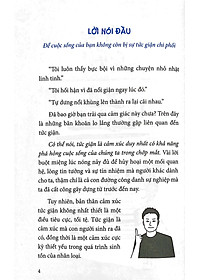 LỜI NÓI ĐẦU
Để cuộc sống của bạn không còn bị sự tức giận chi phối
"Tôi luôn thấy bực bội vì những chuyện nhỏ nhặt
linh tinh."
"Tôi hối hận vì đã nổi giận ngay lúc đó."
"Tự dưng nổi khùng lên thành ra lại cãi nhau."
Đã bao giờ bạn trải qua cảm giác này chưa? Trên đây là
những băn khoăn lo lắng thường gặp liên quan đến tức
giận.
Có thể nói, tức giận là cảm xúc duy nhất có khả năng
phá hỏng cuộc sống của chúng ta trong chớp mắt. Vài lời
buột miệng lúc nóng nảy đủ để hủy hoại một mối quan
hệ, lòng tin tưởng và sự tín nhiệm mà người khác dành
cho ta, thậm chí là cả con đường công danh sự nghiệp mà
ta đã cất công gây dựng từ trước đến nay.
Tuy nhiên, bản thân cảm xúc
tức giận không nhất thiết là một
điều tiêu cực, tồi tệ. Tức giận là
cảm xúc mà con người sinh ra đã
có, đồng thời là một cảm xúc cực
kỳ thiết yếu trong quá trình sinh
tồn của nhân loại.
4